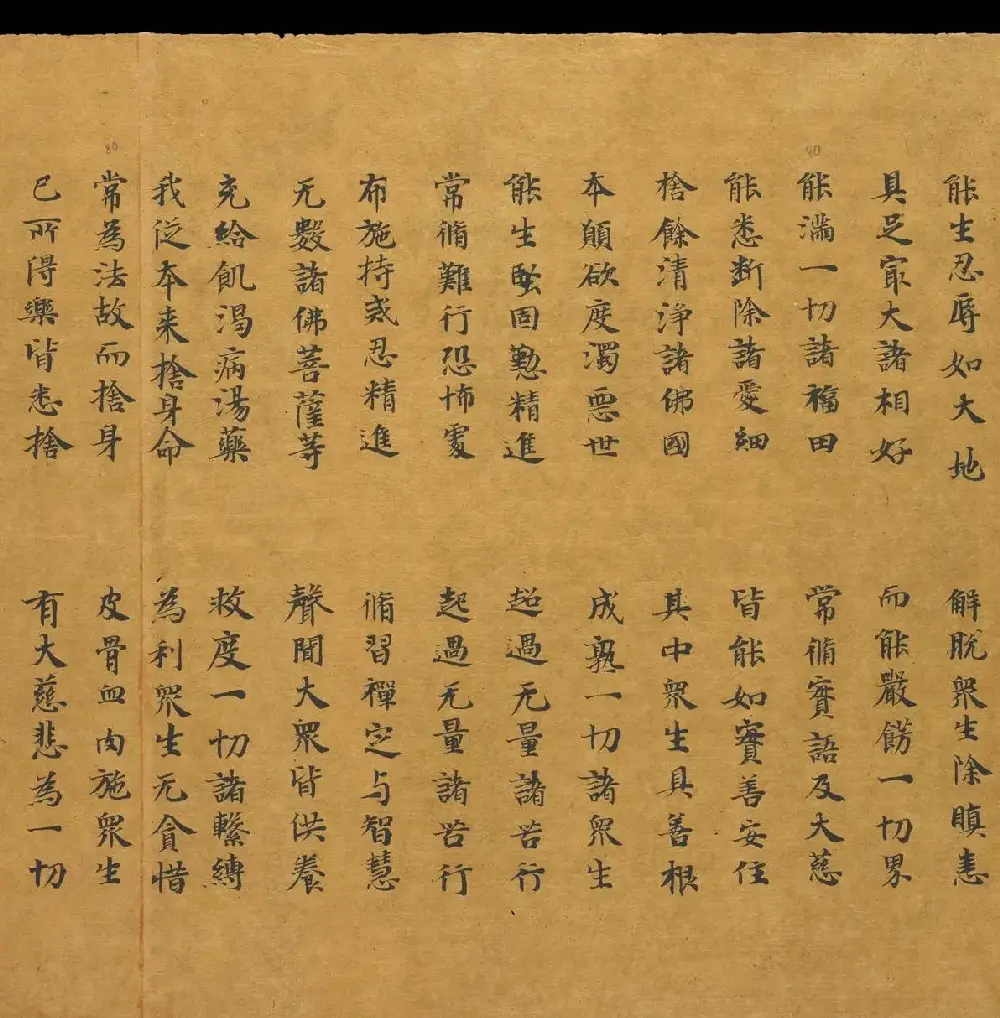 能生忍辱如大地 解脫眾生除瞋恚
具足㝡大諸相好 而能嚴餝一切界
能滿一切諸福田 常脩實語及大慈
能悉斷除諸愛細 皆能如實善安住
捨餘清淨諸佛國 其中眾生具善根
本願欲度濁惡世 成熟一切諸眾生
能生堅固懃精進 超過无量諸苦行
常脩難行恐怖處 起過无量諸苦行
布施持戒忍精進 脩習禪定与智慧
无數諸佛菩薩等 聲聞大眾皆供養
充給飢渴病湯藥 救度一切諸繫縛
我從本来捨身命 為利眾生无貪惜
常為法故而捨身 皮骨血肉施眾生
已所得樂皆悉捨 有大慈悲為一切